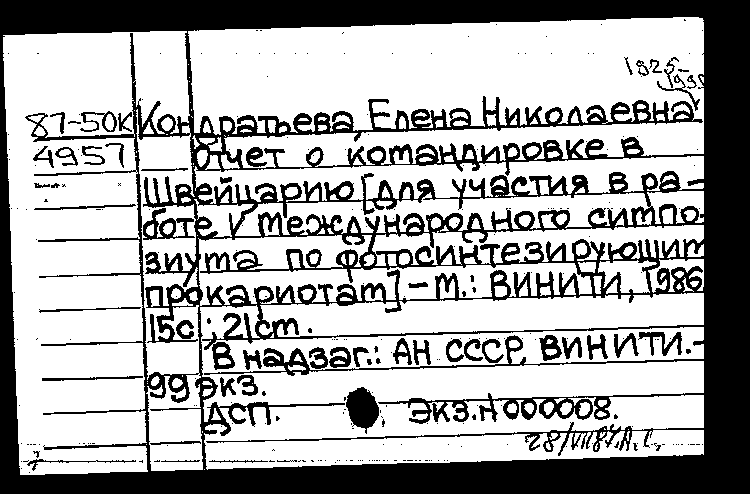 1925-
1990
87-50к Кондратьева, Елена Николаевна
4957 Отчет о командировке в
Швейцарию [для участия в ра-
боте V международного симпо-
зиума по фотосинтезирующим
прокариотам].- М.: ВИНИТИ, 1986
15с.; 21см.
В надзаг.: АН СССР, ВИНИТИ.-
99 экз.
ДСП. Экз.N 000008.
28/VII87. А.С.